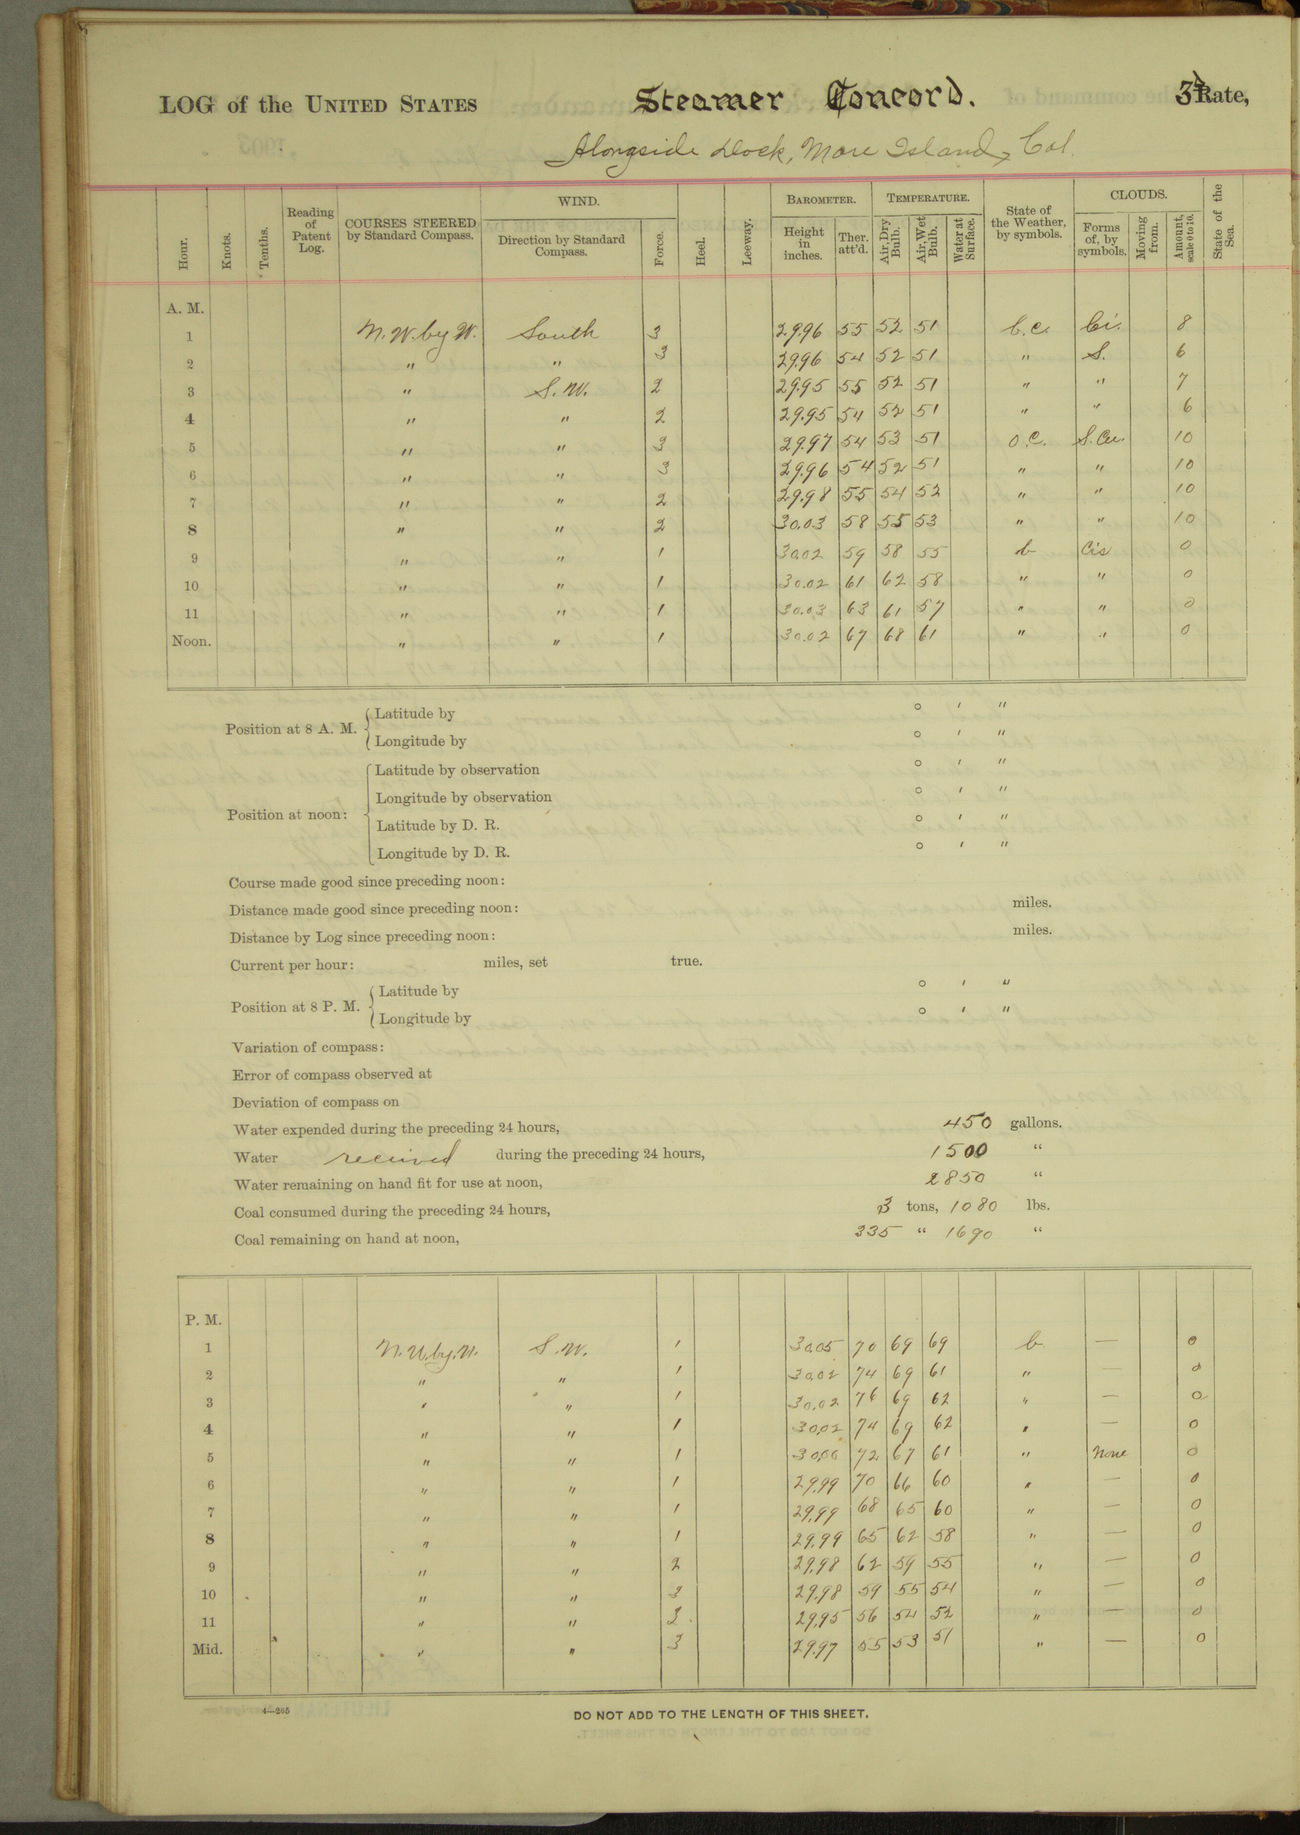 LOG of the UNITED STATES Steamer Concord. 3d Rate,
Alongside Dock, Mare Island, Cal.
Hour. Knots. Tenths. Reading of Patent Log. COURSES STEERED by Standard Compass. WIND. Direction by Standard Compass. Force. Heel. Leeway. BAROMETER. Height in inches. Ther. att'd. TEMPERATURE. Air, Dry Bulb. Air, Wet Bulb. Water at Surface. State of the Weather, by symbols. CLOUDS. Forms of, by symbols. Moving from. Amount, scale 0 to 10. State of the Sea.
A. M.
1 N.W. by W. South 3 29.96 55 52 51 b.c. Ci. 8
2 " " 3 29.96 54 52 51 " S. 6
3 " S.W. 2 29.95 55 52 51 " " 7
4 " " 2 29.95 54 52 51 " " 6
5 " " 3 29.97 54 53 51 o.c. S.Cu. 10
6 " " 3 29.96 54 52 51 " " 10
7 " " 2 29.98 55 54 52 " " 10
8 " " 2 30.03 58 55 53 " " 10
9 " " 1 30.02 59 58 55 b Cis 0
10 " " 1 30.02 61 62 58 " " 0
11 " " 1 30.03 63 61 57 " " 0
Noon. " " 1 30.02 67 68 61 " " 0
Position at 8 A. M. Latitude by ° ' "
Longitude by ° ' "
Position at noon: Latitude by observation ° ' "
Longitude by observation ° ' "
Latitude by D. R. ° ' "
Longitude by D. R. ° ' "
Course made good since preceding noon:
Distance made good since preceding noon: miles.
Distance by Log since preceding noon: miles.
Current per hour: miles, set true.
Position at 8 P. M. Latitude by ° ' "
Longitude by ° ' "
Variation of compass:
Error of compass observed at
Deviation of compass on
Water expended during the preceding 24 hours, 450 gallons.
Water received during the preceding 24 hours, 1500 "
Water remaining on hand fit for use at noon, 2850 "
Coal consumed during the preceding 24 hours, 3 tons, 1080 lbs.
Coal remaining on hand at noon, 335 " 1690 "
P. M.
1 N.W. by W. S.W. 1 30.05 70 69 69 b — 0
2 " " 1 30.02 74 69 61 " — 0
3 " " 1 30.02 76 69 62 " — 0
4 " " 1 30.02 74 69 62 " — 0
5 " " 1 30.00 72 67 61 " None 0
6 " " 1 29.99 70 66 60 " — 0
7 " " 1 29.99 68 65 60 " — 0
8 " " 1 29.99 65 62 58 " — 0
9 " " 2 29.98 62 59 55 " — 0
10 " " 3 29.98 59 55 54 " — 0
11 " " 3 29.95 56 54 52 " — 0
Mid. " " 3 29.97 55 53 51 " — 0
4—265
DO NOT ADD TO THE LENGTH OF THIS SHEET.